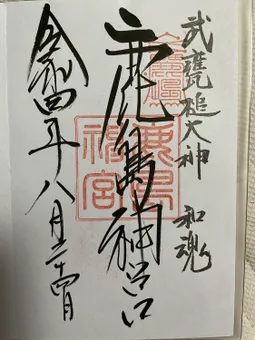 武甕槌大神 和魂
鹿島神宮
令和四年八月二十四日
鹿島
神宮